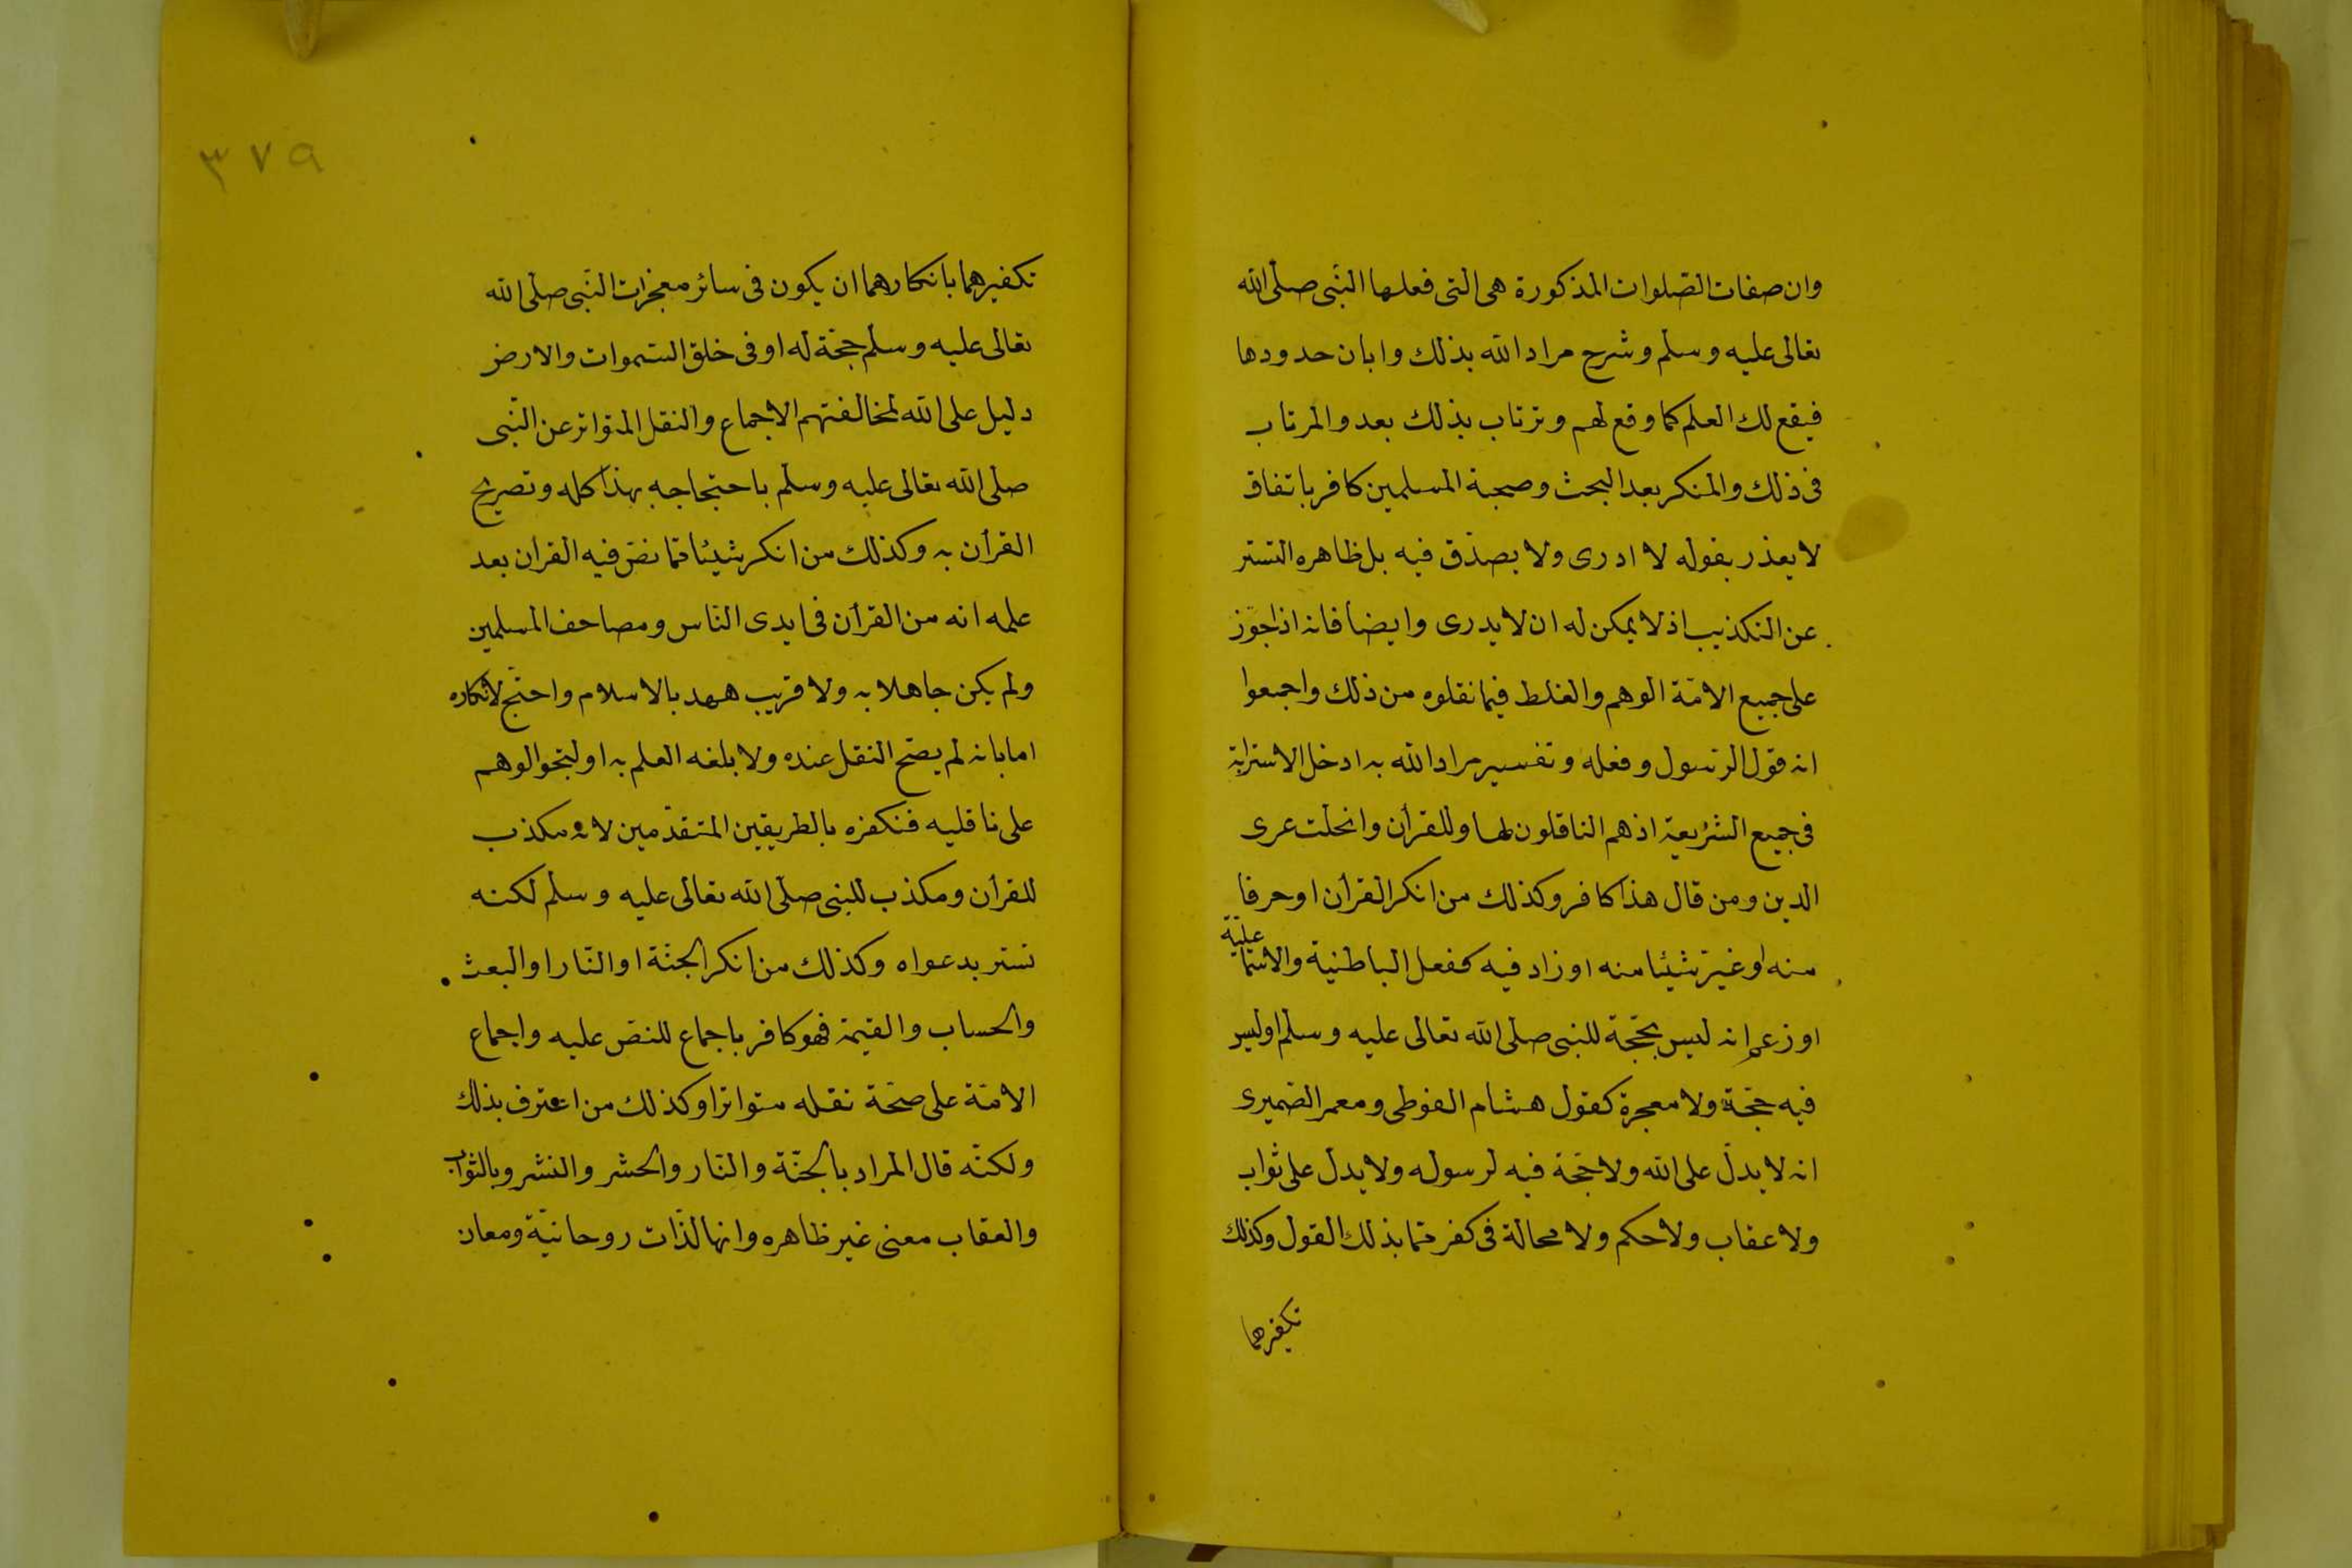 وان صفات الصّلوات المذكورة هى التى فعلها النّبى صلّى الله
تعالى عليه وسلم وشرح مراد الله بذلك وابان حدودها
فيقع لك العلم كما وقع لهم وترتاب بذلك بعد والمرتاب
فى ذلك والمنكر بعد البحث وصحبة المسلمين كافر باتفاق
لا يعذر بقوله لا ادرى ولا يصدّق فيه بل ظاهره التستر
عن التكذيب اذ لا يمكن له ان لا يدرى وايضا فانه اذا جوّز
على جميع الامّة الوهم والغلط فيما نقلوه من ذلك واجمعوا
انه قول الرّسول وفعله وتفسير مراد الله به ادخل الاسترابة
فى جميع الشريعة اذ هم الناقلون لها وللقرأن وانحلّت عرى
الدين ومن قال هذا كافر وكذلك من انكر القرأن او حرفا
منه او غيّر شيئا منه او زاد فيه كفعل الباطنية والاسما عليّة
او زعم انه ليس بحجّة للنبى صلّى الله تعالى عليه وسلم او ليس
فيه حجّة ولا معجزة كقول هشام الفوطى ومعمر الضميرى
انه لا يدلّ على الله ولا حجّة فيه لرسوله ولا يدلّ على ثواب
ولا عقاب ولا حكم ولا محالة فى كفرهما بذلك القول وكذلك
تكفيرهما
٣٧٩
تكفيرهما بانكارهما ان يكون فى سائر معجزات النّبى صلّى الله
تعالى عليه وسلم حجّة له او فى خلق السّموات والارض
دليل على الله لمخالفتهم الاجماع والنقل المتواتر عن النّبى
صلّى الله تعالى عليه وسلم باحتجاجه بهذا كله وتصريح
القرأن به وكذلك من انكر شيئا ممّا نصّ فيه القران بعد
علمه انه من القرأن فى ايدى النّاس ومصاحف المسلمين
ولم يكن جاهلا به ولا قريب عهد بالاسلام واحتجّ لانكاره
اما بانه لم يصحّ النقل عنده ولا بلغه العلم به او لتجوالوهم
على ناقليه فنكفره بالطريقين المتقدّمين لانه مكذب
للقرأن ومكذب للنبى صلّى الله تعالى عليه وسلم لكنه
تستر بدعواه وكذلك من انكر الجنّة او النّار او البعث
والحساب والقيمة فهو كافر باجماع للنصّ عليه واجماع
الامّة على صحّة نقله متواترا وكذلك من اعترف بذلك
ولكنّه قال المراد بالجنّة والنّار والحشر والنشر وبالثواب
والعقاب معنى غير ظاهره وانها لذّات روحانيّة ومعان